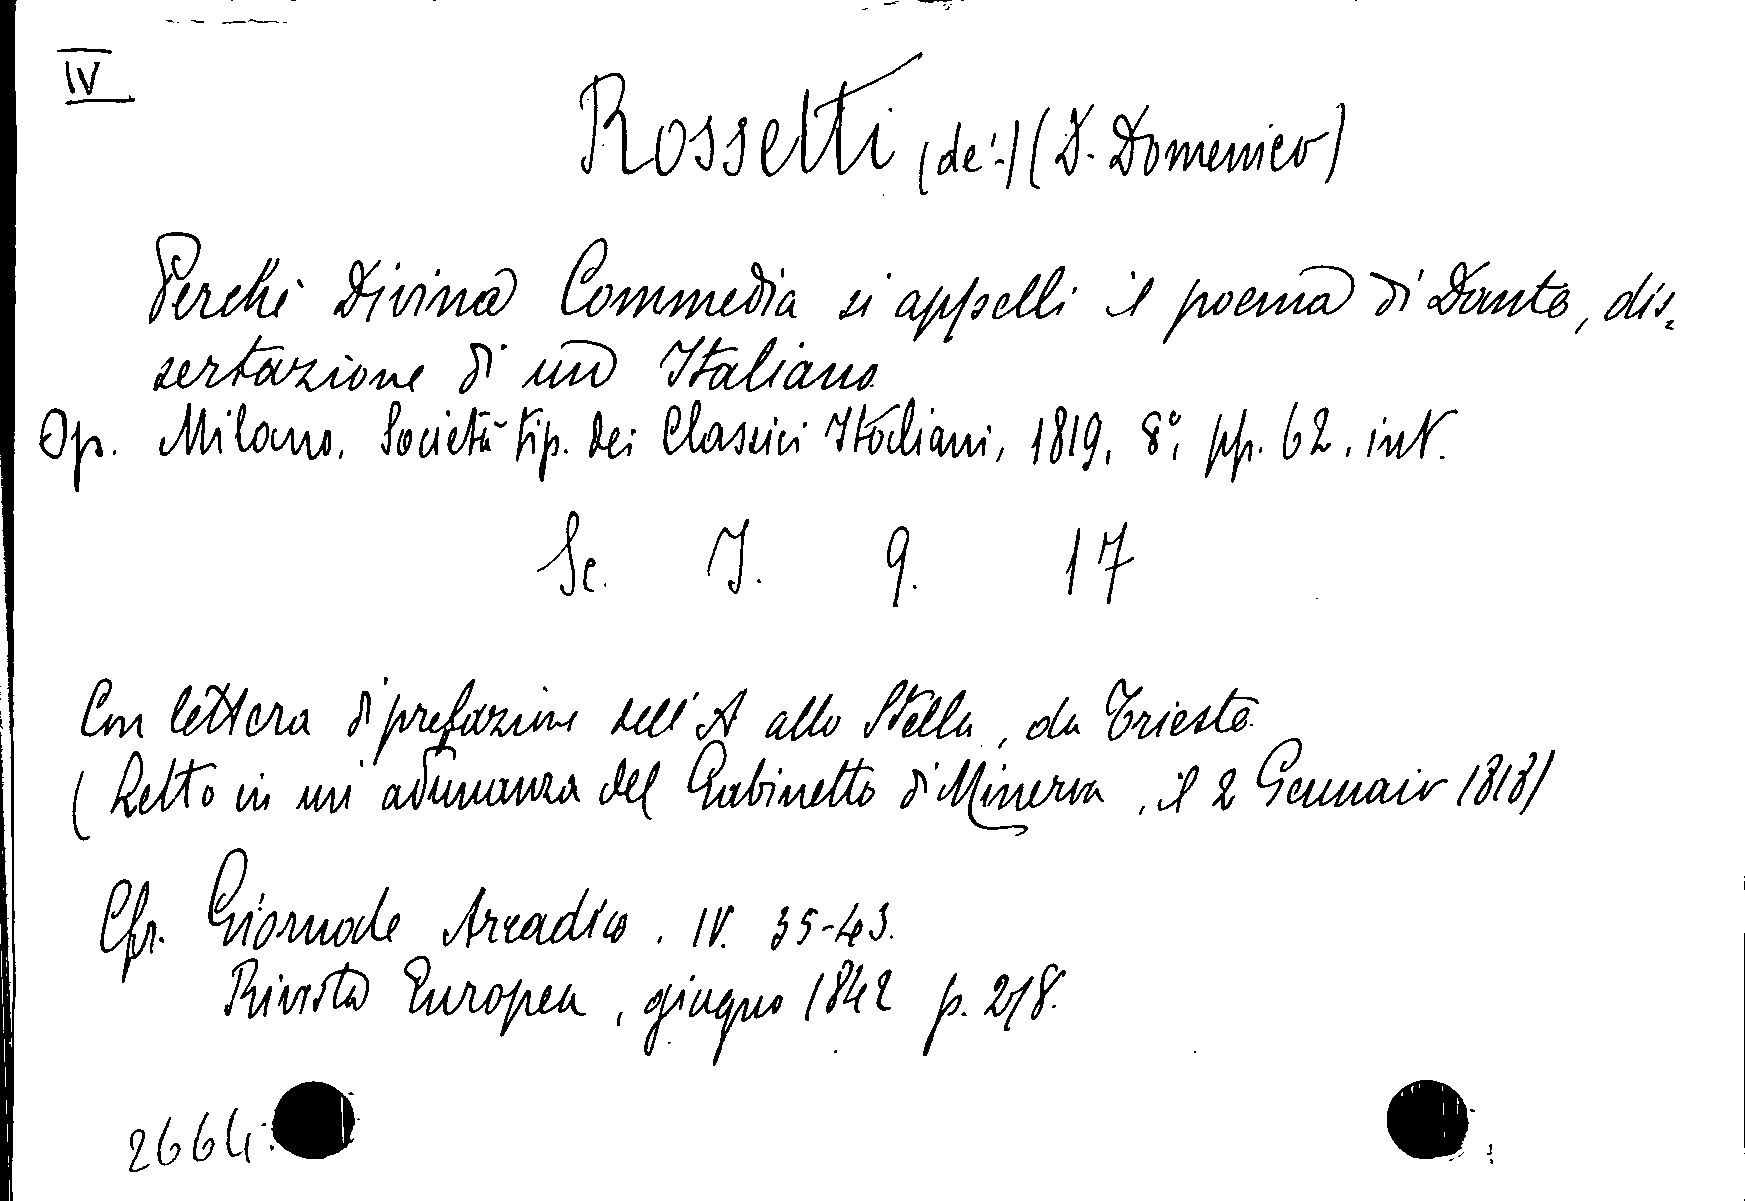 IV
Rossetti (de'-) (D. Domenico)
Perchè Divina Commedia si appelli il poema di Dante, dis-
sertazione di un Italiano.
Op. Milano, Società tip. dei Classici Italiani, 1819, 8°, pp. 62. int.
Sc. I. 9. 17
Con lettera di prefazione dell'A allo Stella, da Trieste.
(Letto in un' adunanza del Gabinetto di Minerva, il 2 Gennaio 1818)
Cfr. Giornale Arcadico. IV. 35-43.
Rivista Europea, giugno 1842 p. 218.
2664